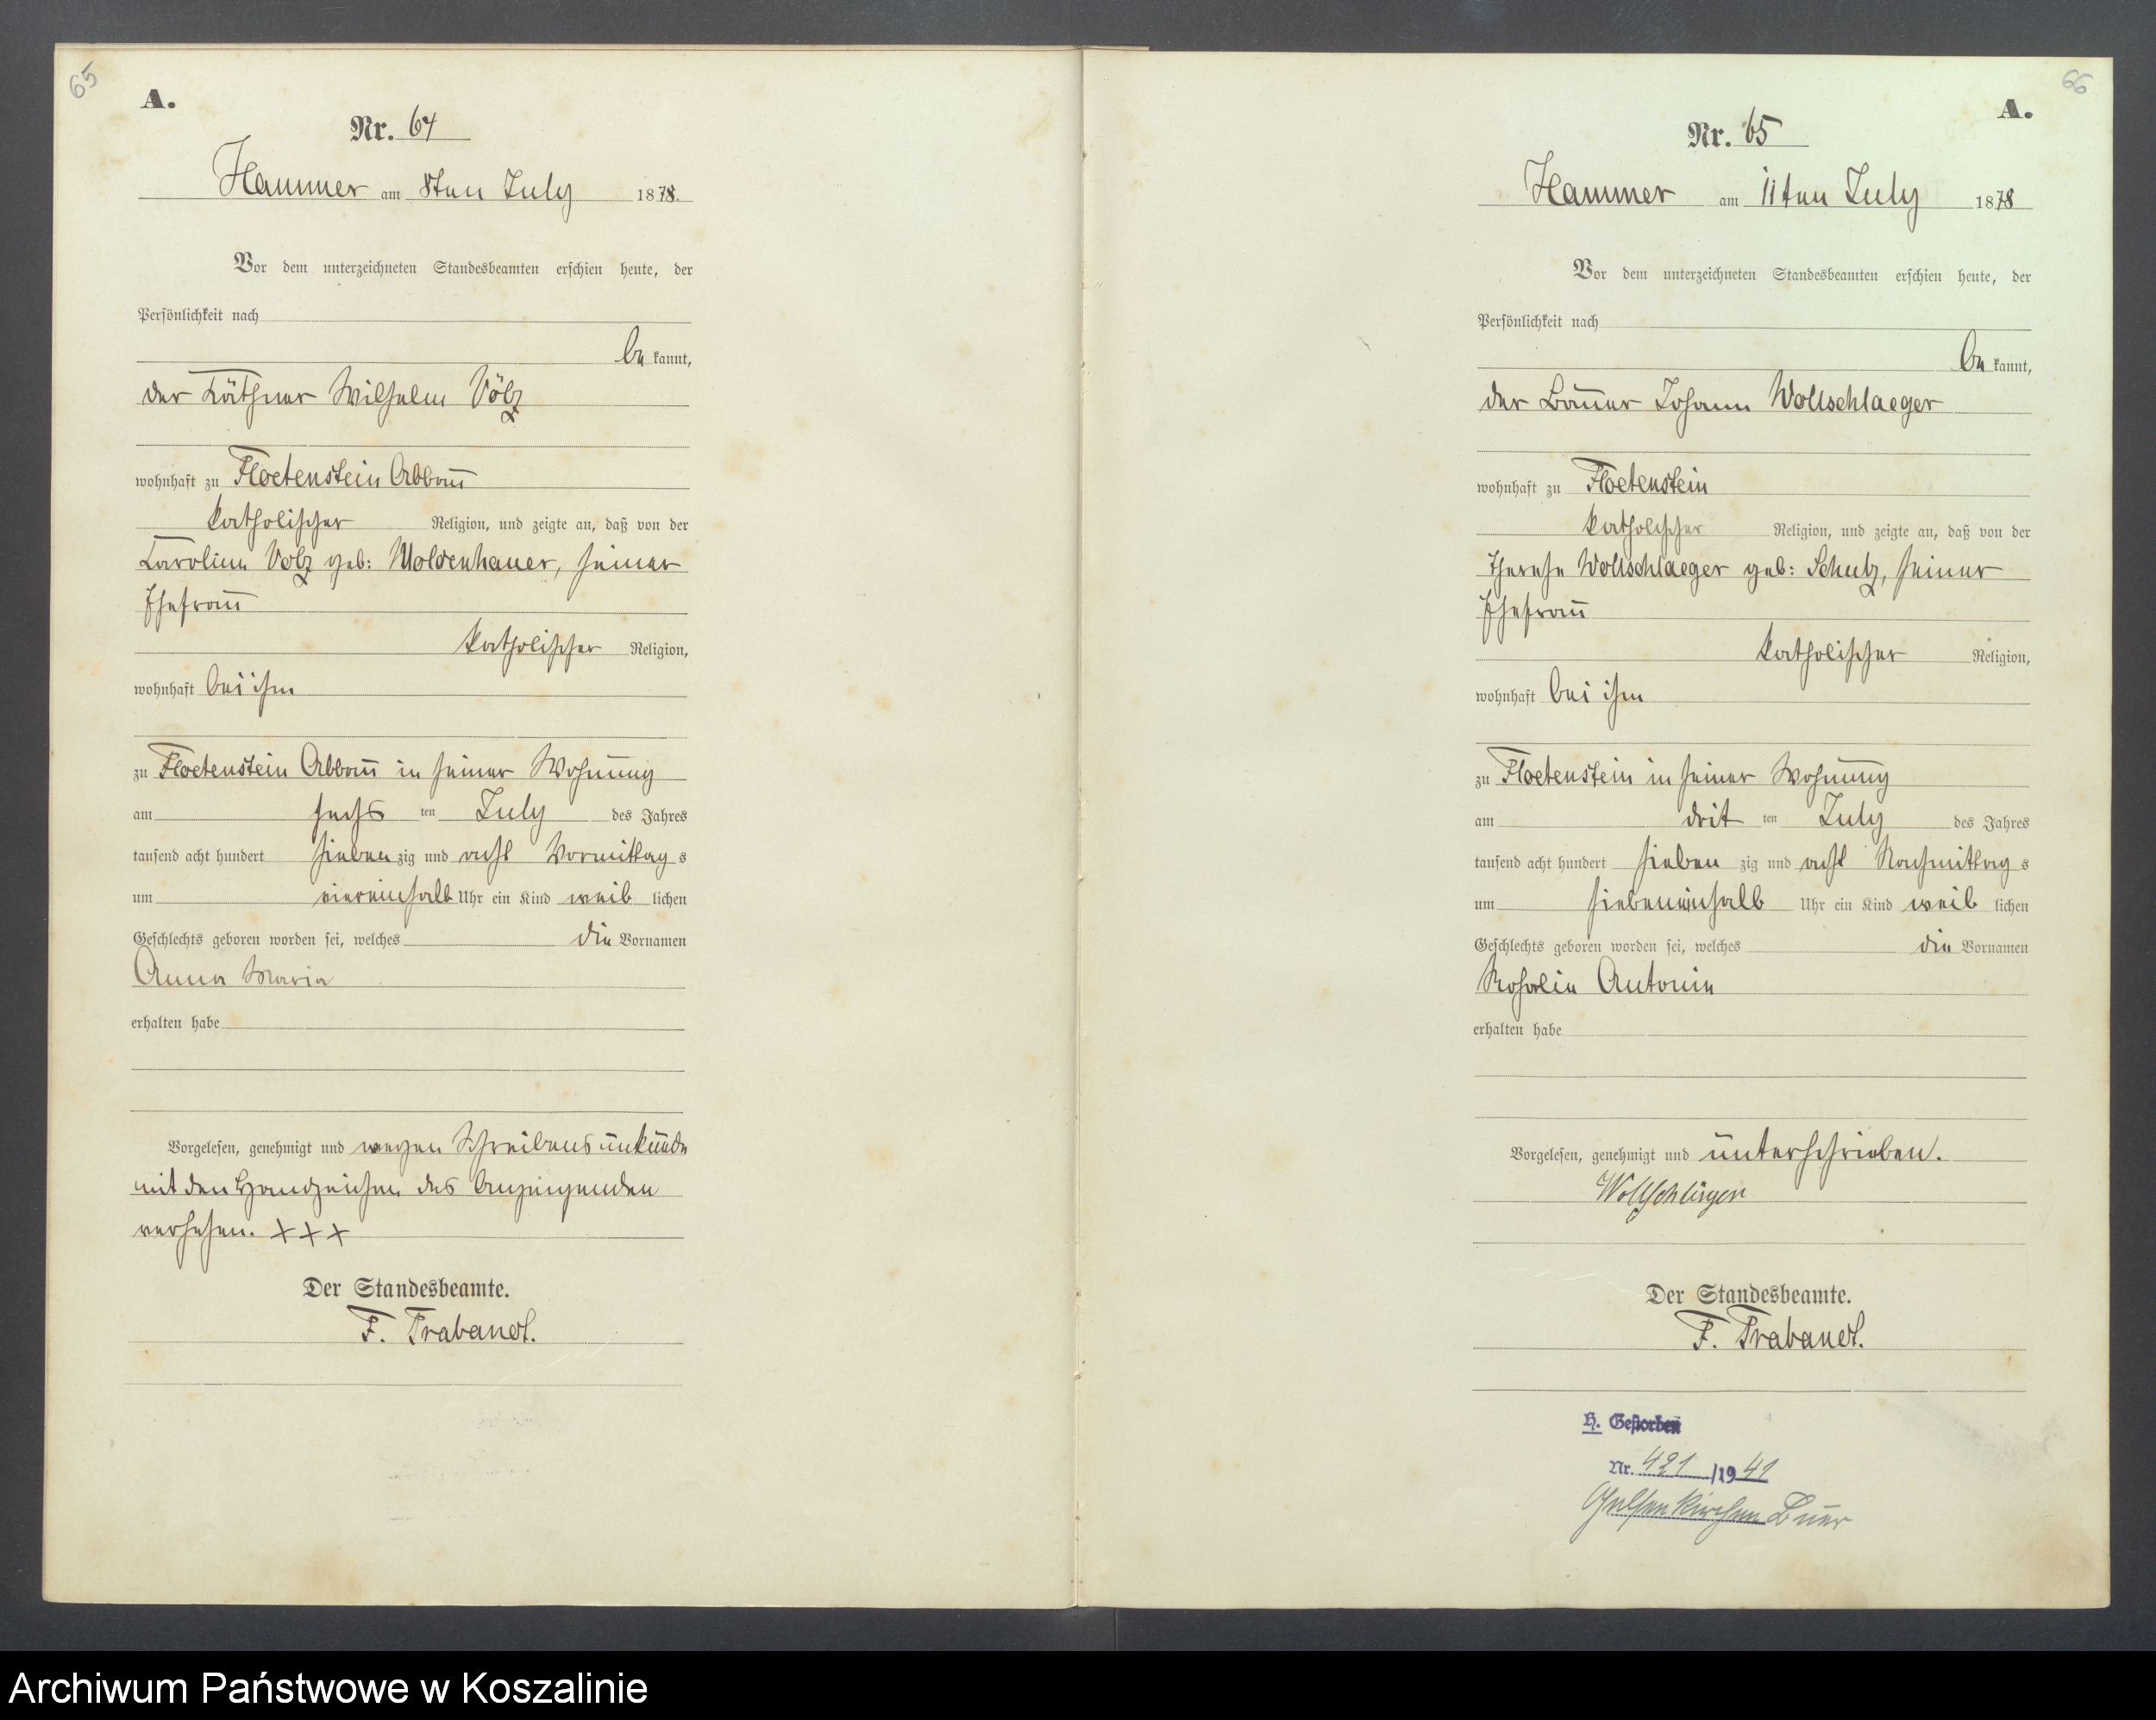 65
A.
Nr. 64
Hammer am 8ten July 1878.
Vor dem unterzeichneten Standesbeamten erschien heute, der
Persönlichkeit nach
be kannt,
der Käthner Wilhelm Völz
wohnhaft zu Floetenstein Abbau
katholischer Religion, und zeigte an, daß von der
Karoline Völz geb: Moldenhauer, seiner
Ehefrau
katholischer Religion,
wohnhaft bei ihm
zu Floetenstein Abbau in seiner Wohnung
am sechs ten July des Jahres
tausend acht hundert sieben zig und acht Vormittag s
um viereinhalb Uhr ein Kind weib lichen
Geschlechts geboren worden sei, welches die Vornamen
Anna Maria
erhalten habe
Vorgelesen, genehmigt und wegen Schreibensunkunde
mit den Handzeichen des Anzeigenden
versehen. +++
Der Standesbeamte.
F. Trabandt.
66
A.
Nr. 65
Hammer am 11ten July 1878
Vor dem unterzeichneten Standesbeamten erschien heute, der
Persönlichkeit nach
be kannt,
der Bauer Johann Wollschlaeger
wohnhaft zu Floetenstein
katholischer Religion, und zeigte an, daß von der
Therese Wollschlaeger geb: Schulz, seiner
Ehefrau
katholischer Religion,
wohnhaft bei ihm
zu Floetenstein in seiner Wohnung
am drit ten July des Jahres
tausend acht hundert sieben zig und acht Nachmittag s
um siebeneinhalb Uhr ein Kind weib lichen
Geschlechts geboren worden sei, welches die Vornamen
Rosalie Antonie
erhalten habe
Vorgelesen, genehmigt und unterschrieben.
Wollschläger
Der Standesbeamte.
F. Trabandt.
H. Gestorben
Nr. 421 /1941
Gelsenkirchen Buer
Archiwum Państwowe w Koszalinie